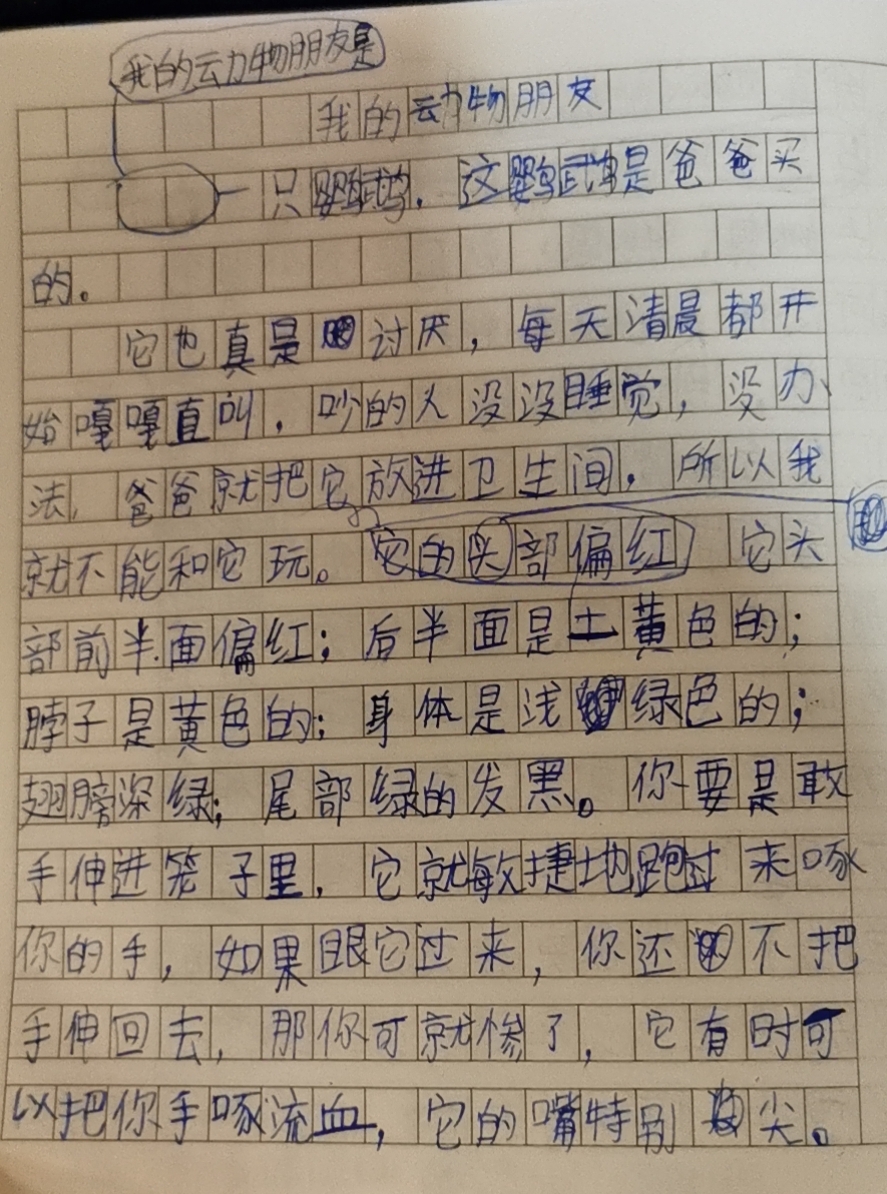 我的动物朋友是
我的动物朋友
一只鹦鹉，这鹦鹉是爸爸买
的。
它也真是讨厌，每天清晨都开
始嘎嘎直叫，吵的人没没睡觉，没办
法，爸爸就把它放进卫生间，所以我
就不能和它玩。它的头部偏红 它头
部前半面偏红；后半面是土黄色的；
脖子是黄色的；身体是浅绿色的；
翅膀深绿；尾部绿的发黑。你要是敢
手伸进笼子里，它就敏捷地跑过来啄
你的手，如果跟它过来，你还不把
手伸回去，那你可就惨了，它有时可
以把你手啄流血，它的嘴特别尖。